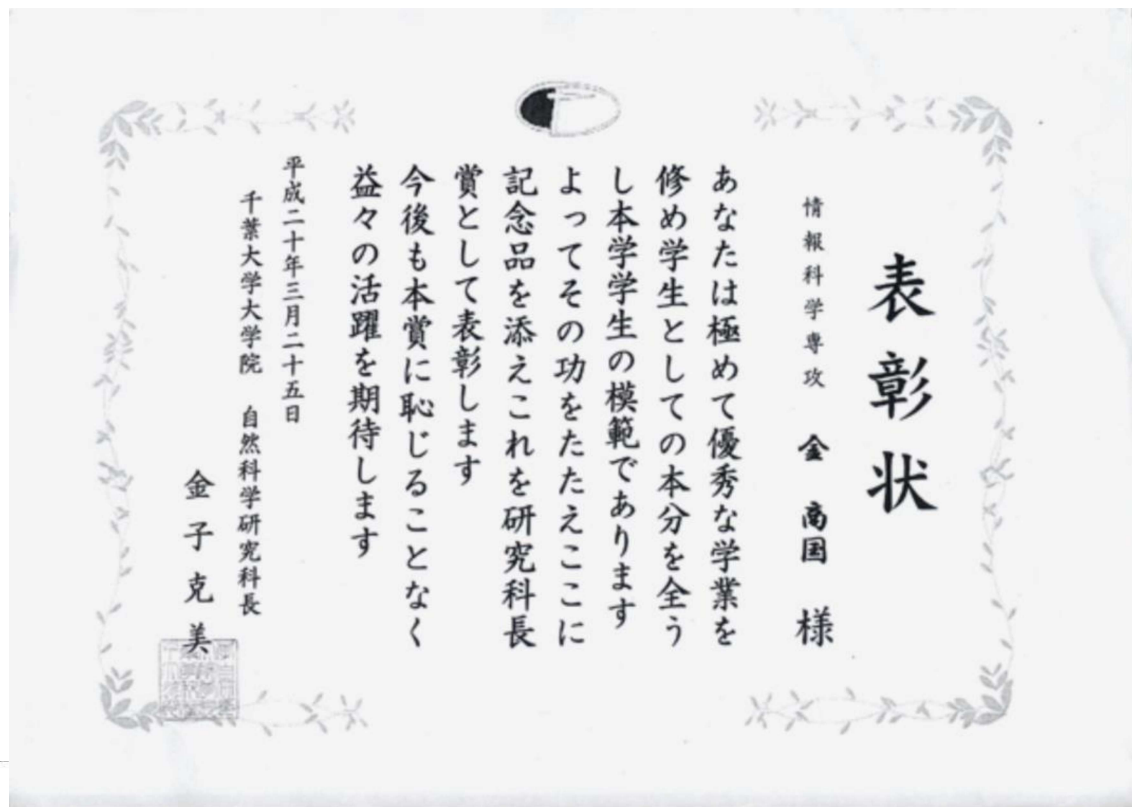 表彰状
情報科学専攻 金 商国 様
あなたは極めて優秀な学業を
修め学生としての本分を全う
し本学学生の模範であります
よってその功をたたえここに
記念品を添えこれを研究科長
賞として表彰します
今後も本賞に恥じることなく
益々の活躍を期待します
平成二十年三月二十五日
千葉大学大学院 自然科学研究科長
金子克美